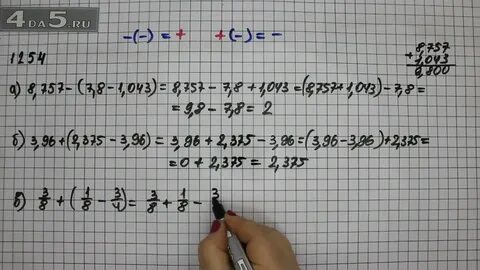 4DA5.RU
-(-) = + +(-) = -
1254
8,757
+
1,043
9,800
а) 8,757 - (7,8 - 1,043) = 8,757 - 7,8 + 1,043 = (8,757 + 1,043) - 7,8 =
= 9,8 - 7,8 = 2
б) 3,96 + (2,375 - 3,96) = 3,96 + 2,375 - 3,96 = (3,96 - 3,96) + 2,375 =
= 0 + 2,375 = 2,375
в) 3/8 + (1/8 - 3/4) = 3/8 + 1/8 - 3